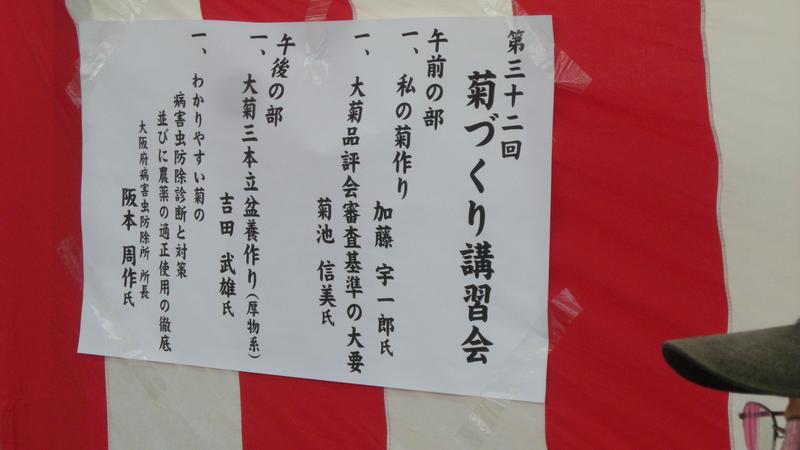 第三十二回
菊づくり講習会
午前の部
一、私の菊作り
加藤 宇一郎氏
一、大菊品評会審査基準の大要
菊池 信美氏
午後の部
一、大菊三本立盆養作り(厚物系)
吉田 武雄氏
一、わかりやすい菊の
病害虫防除診断と対策
並びに農薬の適正使用の徹底
大阪府病害虫防除所 所長
阪本 周作氏